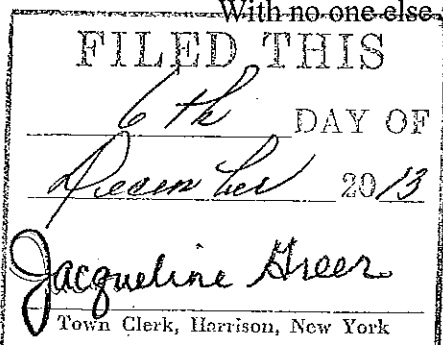 With no one else
FILED THIS
6th DAY OF
December 2013
Jacqueline Greer
Town Clerk, Harrison, New York